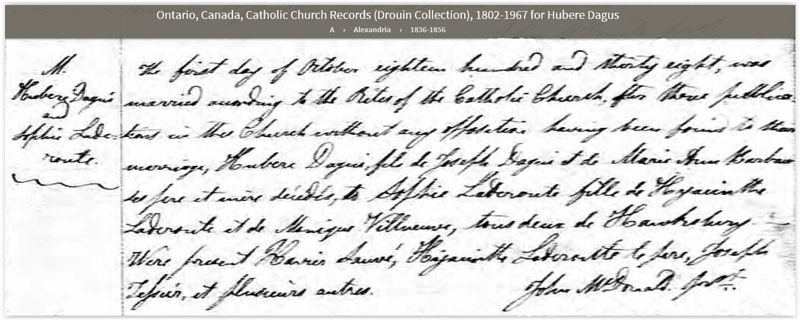 Ontario, Canada, Catholic Church Records (Drouin Collection), 1802-1967 for Hubere Dagus
A › Alexandria › 1836-1856
M.
Hubere Dagus
and
Sophie Lade-
route.
The first day of October eighteen hundred and thirty eight, was
married according to the Rites of the Catholic Church, after three publica-
tions in this Church without any opposition having been found to their
marriage, Hubere Dagus, fils de Joseph Dagus et de Marie Ann Barbau
ses pere et mère décédés, to Sophie Laderoute fille de Hyacinthe
Laderoute et de Monique Villneuve, tous deux de Hawksbury.
Were present Xavier Sauvé, Hyacinthe Laderoutte le pere, Joseph
Tessier, et plusieurs autres.
John McDonald